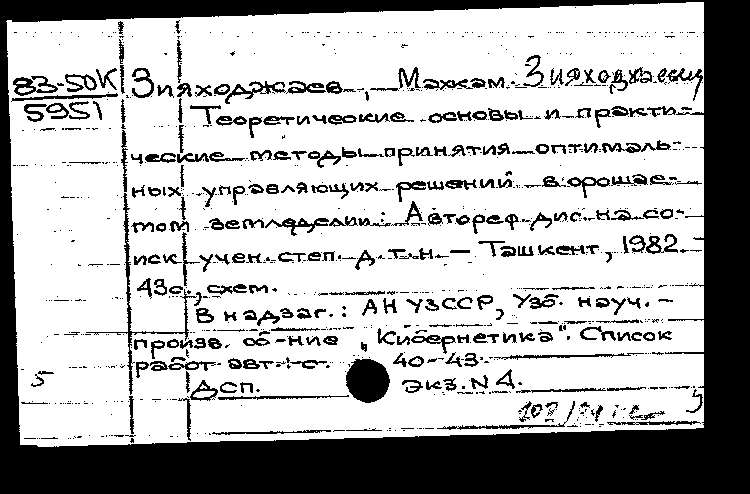 83-50К
5951
Зияходжаев, Махкам
Теоретические основы и практи-
ческие методы принятия оптималь-
ных управляющих решений в орошае-
мом земледелии: Автореф. дис. на со-
иск. учен. степ. д.т.н. – Ташкент, 1982. –
43с., схем.
В надзаг.: АН УзССР, Узб. науч.-
произв. об-ние „Кибернетика". Список
работ авт.: с. 40-43.
5 Дсп. Экз. N 4.